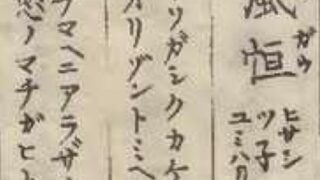 恒ガウ
ヒサシ
ツ子
ユミハリ
ソガシクカケ
カリゾントミヘ
マヘニアラザ
ノマチガヒト